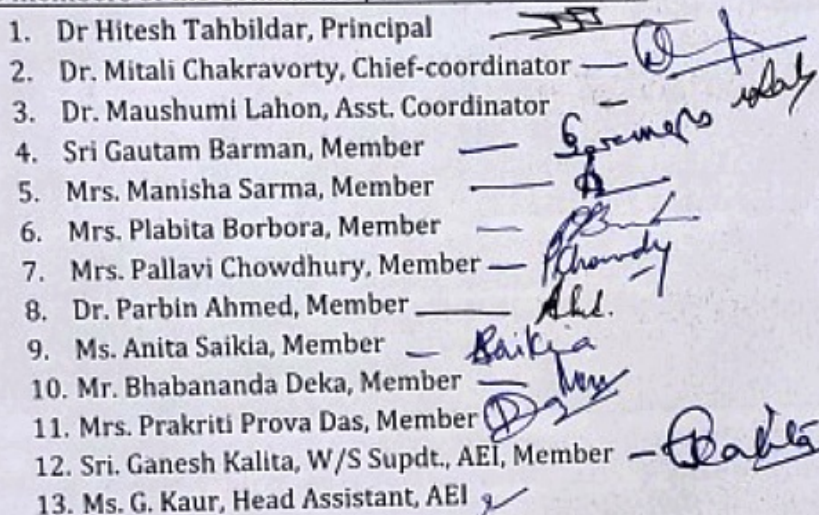 1. Dr Hitesh Tahbildar, Principal
2. Dr. Mitali Chakravorty, Chief-coordinator —
3. Dr. Maushumi Lahon, Asst. Coordinator –
4. Sri Gautam Barman, Member —
5. Mrs. Manisha Sarma, Member —
6. Mrs. Plabita Borbora, Member —
7. Mrs. Pallavi Chowdhury, Member — PChowdy
8. Dr. Parbin Ahmed, Member —
9. Ms. Anita Saikia, Member — Saikia
10. Mr. Bhabananda Deka, Member —
11. Mrs. Prakriti Prova Das, Member
12. Sri. Ganesh Kalita, W/S Supdt., AEI, Member – GKalita
13. Ms. G. Kaur, Head Assistant, AEI